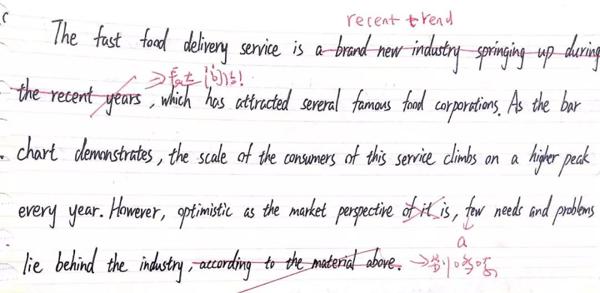 recent trend
The fast food delivery service is a brand new industry springing up during
the recent years, which has attracted several famous food corporations. As the bar
chart demonstrates, the scale of the consumers of this service climbs on a higher peak
every year. However, optimistic as the market perspective of it is, few needs and problems
a
lie behind the industry, according to the material above.